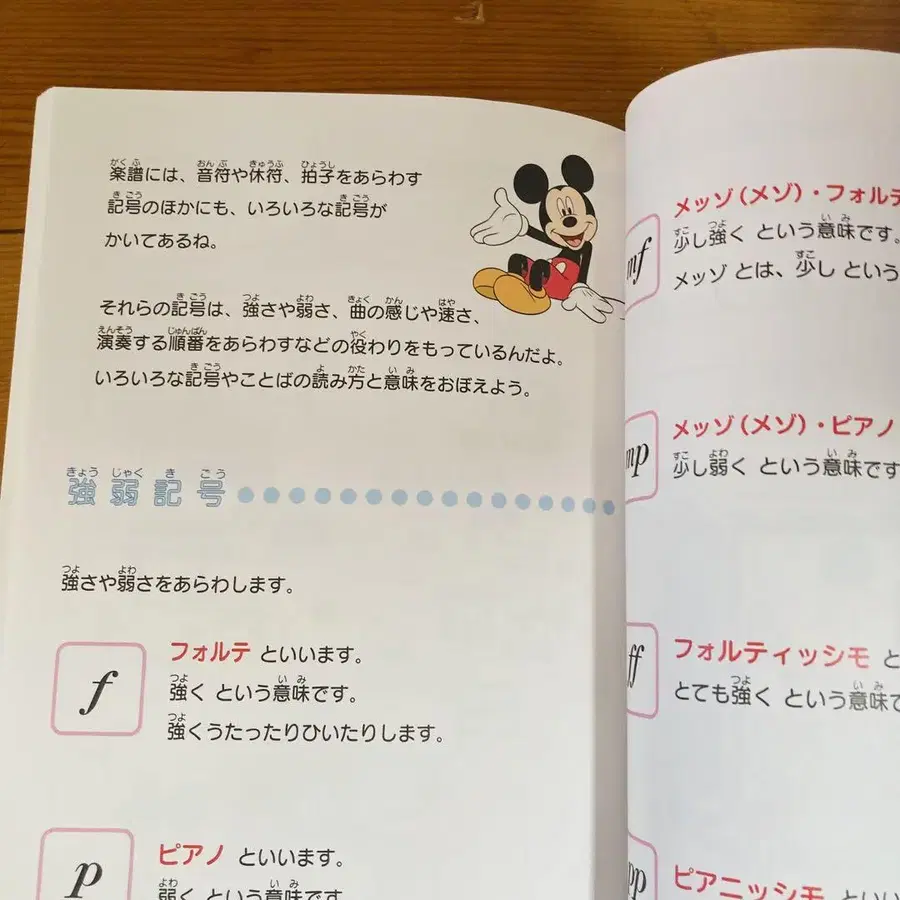 楽譜には、音符や休符、拍子をあらわす
記号のほかにも、いろいろな記号が
かいてあるね。
それらの記号は、強さや弱さ、曲の感じや速さ、
演奏する順番をあらわすなどの役わりをもっているんだよ。
いろいろな記号やことばの読み方と意味をおぼえよう。
強弱記号
強さや弱さをあらわします。
f
フォルテ といいます。
強く という意味です。
強くうたったりひいたりします。
p
ピアノ といいます。
弱く という意味です
mf
メッゾ(メゾ)・フォルテ
少し強く という意味です。
メッゾ とは、少し という
mp
メッゾ(メゾ)・ピアノ
少し弱く という意味です
ff
フォルティッシモ と
とても強く という意味で
pp
ピアニッシモ といい